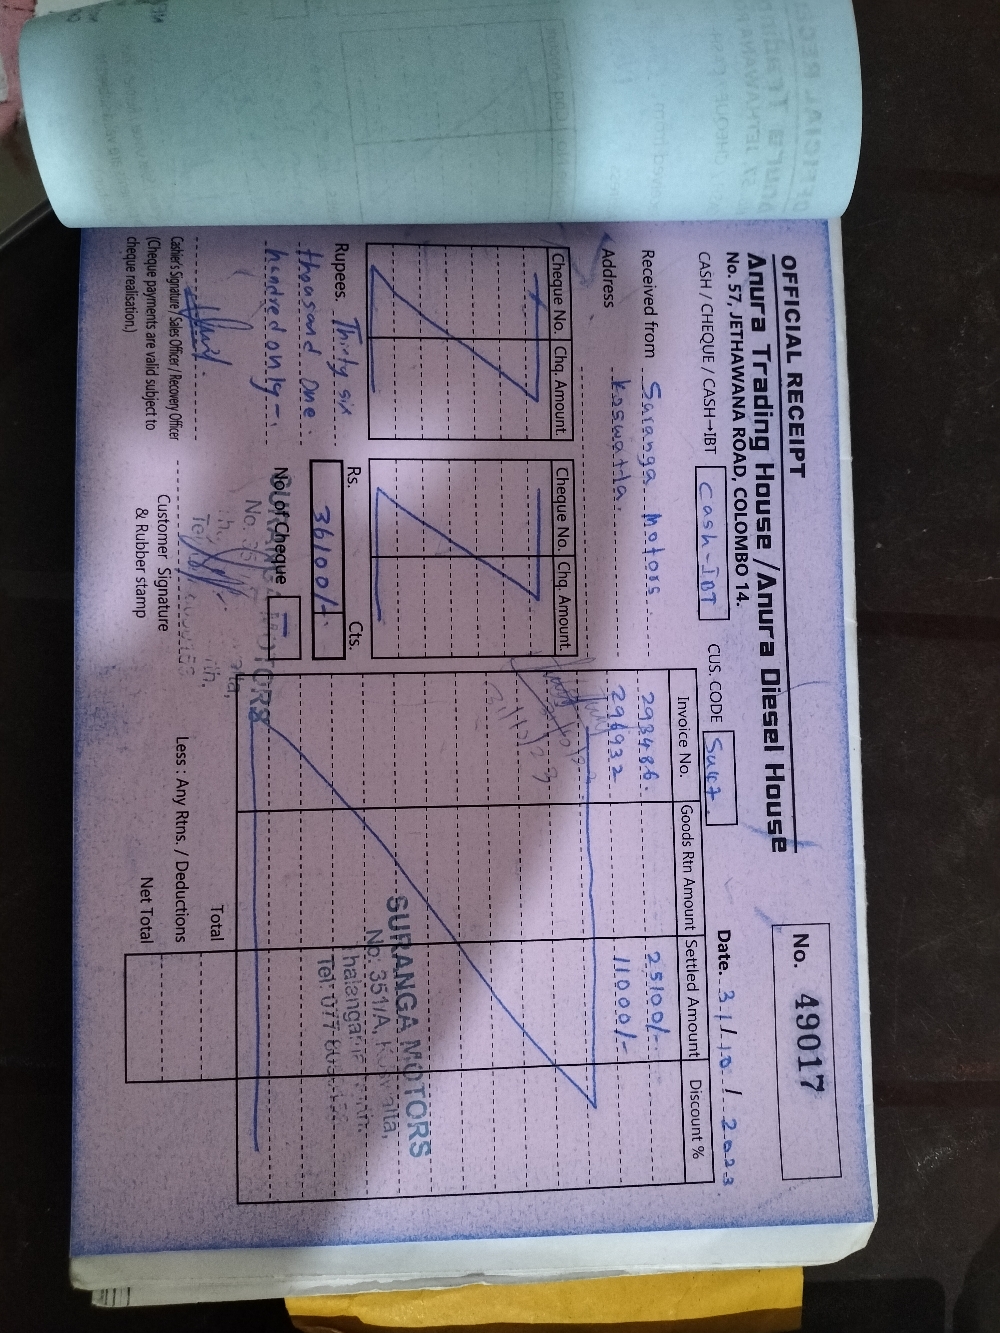 OFFICIAL RECEIPT
No. 49017
Anura Trading House / Anura Diesel House
No. 57, JETHAWANA ROAD, COLOMBO 14.
CASH / CHEQUE / CASH→IBT Cash-IBT CUS. CODE Su47 Date. 31/10/2023
Received from Suranga Motors
Address Koswatta.
Cheque No. Chq. Amount. Cheque No. Chq. Amount.
Invoice No. Goods Rtn Amount Settled Amount Discount %
293486. 25100/-
296932 11000/-
31/10/23
Rupees. Thirty six
thousand one
hundred only-
Rs. Cts.
36100/-
No. of Cheque -
SURANGA MOTORS
No. 351/A,
Tel: 077
SURANGA MOTORS
No. 35
Total
Less : Any Rtns. / Deductions
Net Total
Cashier's Signature / Sales Officer / Recovery Officer
(Cheque payments are valid subject to
cheque realisation.)
Customer Signature
& Rubber stamp